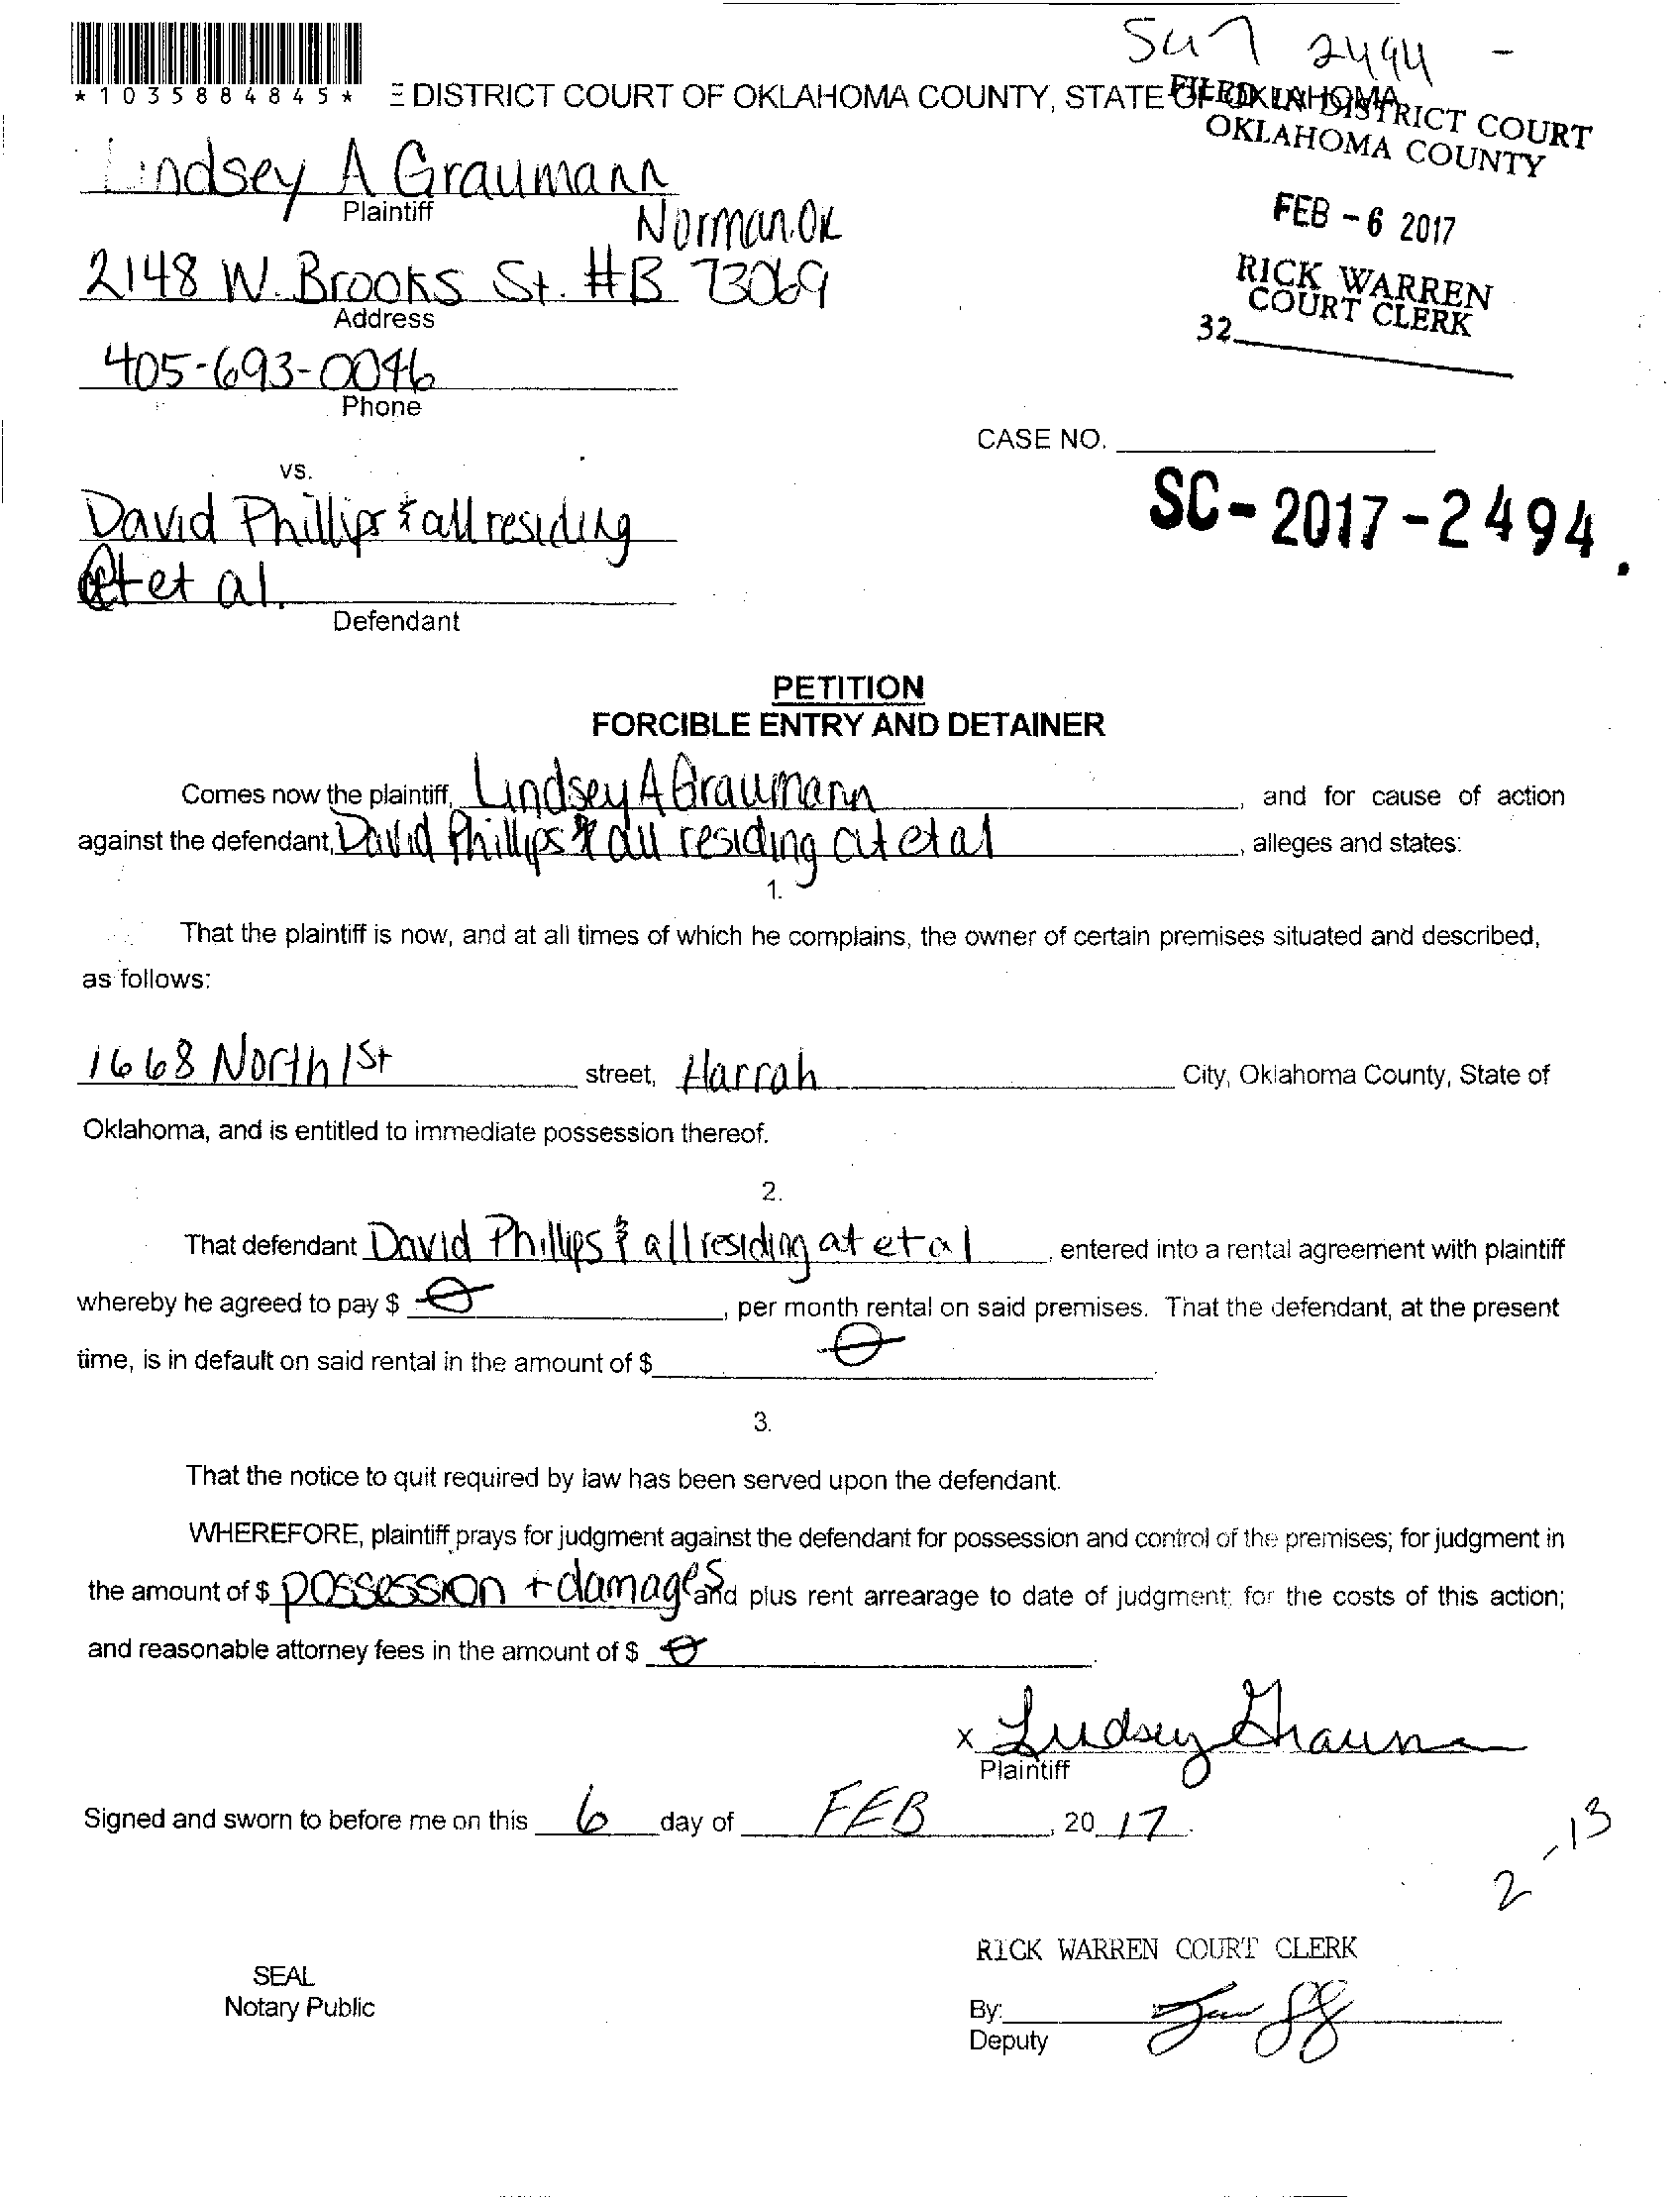 2494 -
*1035884845*
E DISTRICT COURT OF OKLAHOMA COUNTY, STATE OF OKLAHOMA
FILED IN DISTRICT COURT
OKLAHOMA COUNTY
FEB -6 2017
RICK WARREN
COURT CLERK
32
Lindsey A Graumann
Plaintiff
Norman.OK
2148 W. Brooks St. #B 73069
Address
405-693-0046
Phone
CASE NO.
SC-2017-2494
vs.
David Phillips & all residing
at et al.
Defendant
PETITION
FORCIBLE ENTRY AND DETAINER
Comes now the plaintiff, Lindsey A Graumann, and for cause of action
against the defendant, David Phillips & all residing at et al, alleges and states:
1.
That the plaintiff is now, and at all times of which he complains, the owner of certain premises situated and described,
as follows:
1668 North 1st street, Harrah City, Oklahoma County, State of
Oklahoma, and is entitled to immediate possession thereof.
2.
That defendant David Phillips & all residing at et al, entered into a rental agreement with plaintiff
whereby he agreed to pay $ 0, per month rental on said premises. That the defendant, at the present
time, is in default on said rental in the amount of $ 0.
3.
That the notice to quit required by law has been served upon the defendant.
WHEREFORE, plaintiff prays for judgment against the defendant for possession and control of the premises; for judgment in
the amount of $ possession + damages and plus rent arrearage to date of judgment; for the costs of this action;
and reasonable attorney fees in the amount of $ 0.
x Lindsey Grauman
Plaintiff
Signed and sworn to before me on this 6 day of FEB, 20 17.
2-13
RICK WARREN COURT CLERK
SEAL
Notary Public
By:
Deputy